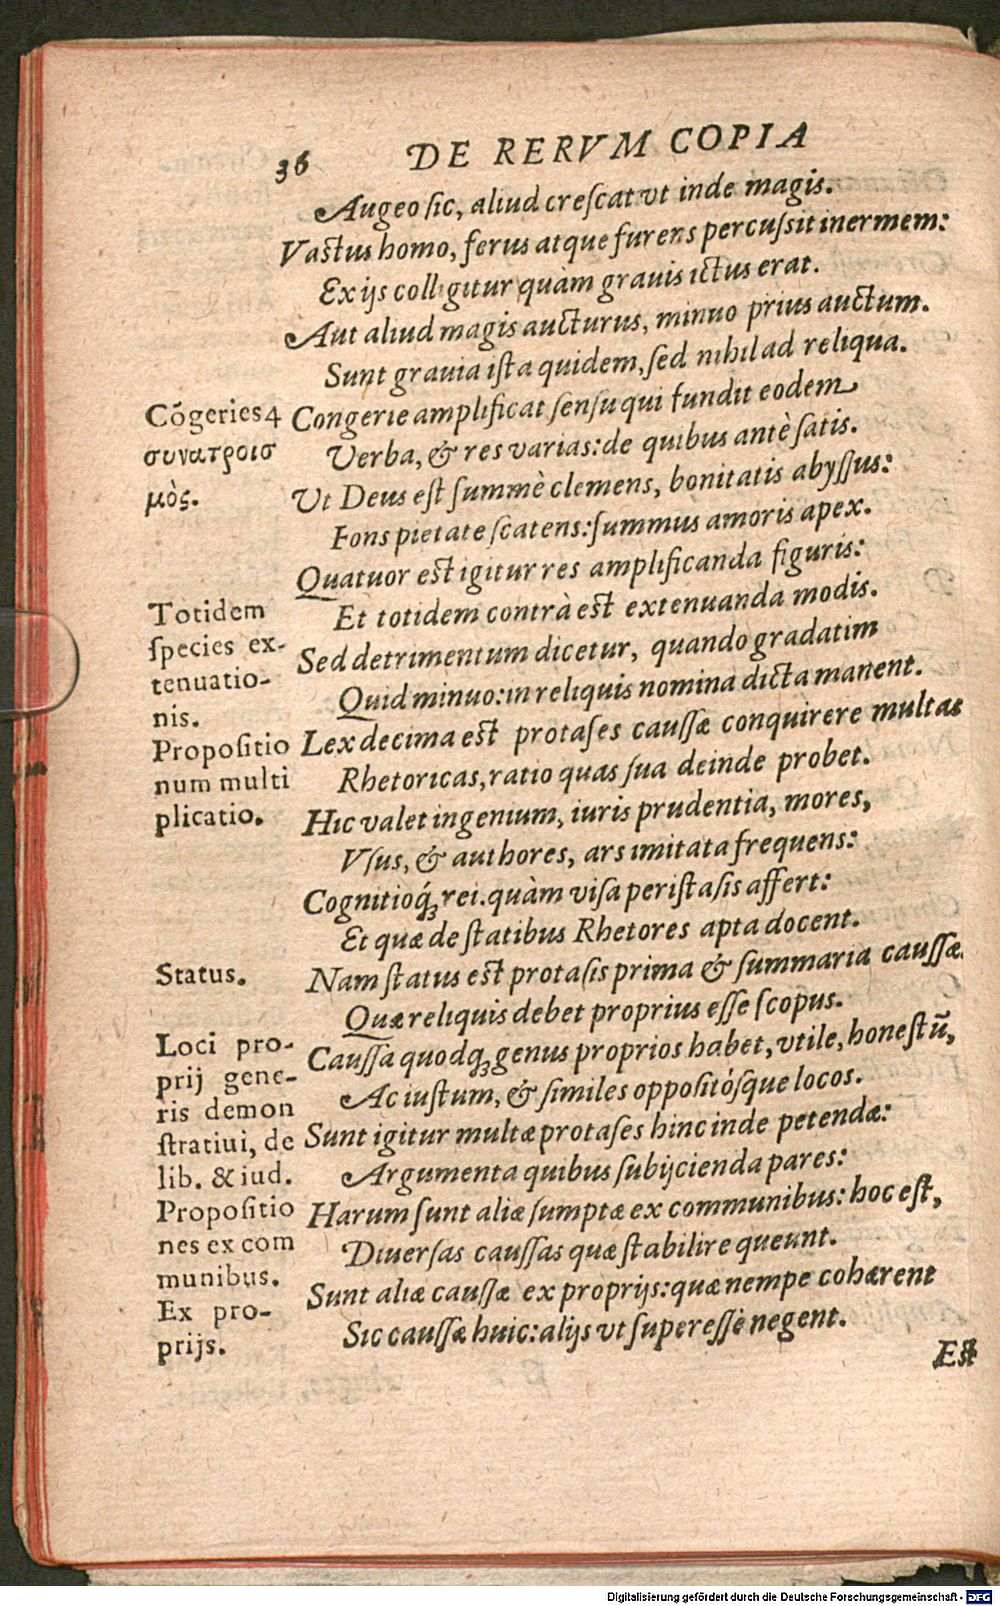 36 DE RERVM COPIA
Augeo sic, aliud crescat vt inde magis.
Vastus homo, ferus atque furens percussit inermem:
Ex ijs colligitur quàm grauis ictus erat.
Aut aliud magis aucturus, minuo prius auctum.
Sunt grauia ista quidem, sed nihil ad reliqua.
Cōgeries 4
συνατροισ
μὸς.
Congerie amplificat sensu qui fundit eodem
Verba, & res varias: de quibus antè satis.
Ut Deus est summè clemens, bonitatis abyssus:
Fons pietate scatens: summus amoris apex.
Quatuor est igitur res amplificanda figuris:
Totidem
species ex-
tenuatio-
nis.
Et totidem contrà est extenuanda modis.
Sed detrimentum dicetur, quando gradatim
Quid minuo: in reliquis nomina dicta manent.
Propositio
num multi
plicatio.
Lex decima est protases caussæ conquirere multas
Rhetoricas, ratio quas sua deinde probet.
Hic valet ingenium, iuris prudentia, mores,
Vsus, & authores, ars imitata frequens:
Cognitioq́; rei. quàm visa peristasis affert:
Et quæ de statibus Rhetores apta docent.
Status.
Nam status est protasis prima & summaria caussæ.
Quæ reliquis debet proprius esse scopus.
Loci pro-
prij gene-
ris demon
stratiui, de
lib. & iud.
Caussa quodq; genus proprios habet, vtile, honestū,
Ac iustum, & similes oppositósque locos.
Sunt igitur multæ protases hinc inde petendæ:
Argumenta quibus subijcienda pares:
Propositio
nes ex com
munibus.
Harum sunt aliæ sumptæ ex communibus: hoc est,
Diuersas caussas quæ stabilire queunt.
Ex pro-
prijs.
Sunt aliæ caussæ ex proprijs: quæ nempe cohærent
Sic caussæ huic: alijs vt superessè negent.
Est
Digitalisierung gefördert durch die Deutsche Forschungsgemeinschaft - DFG